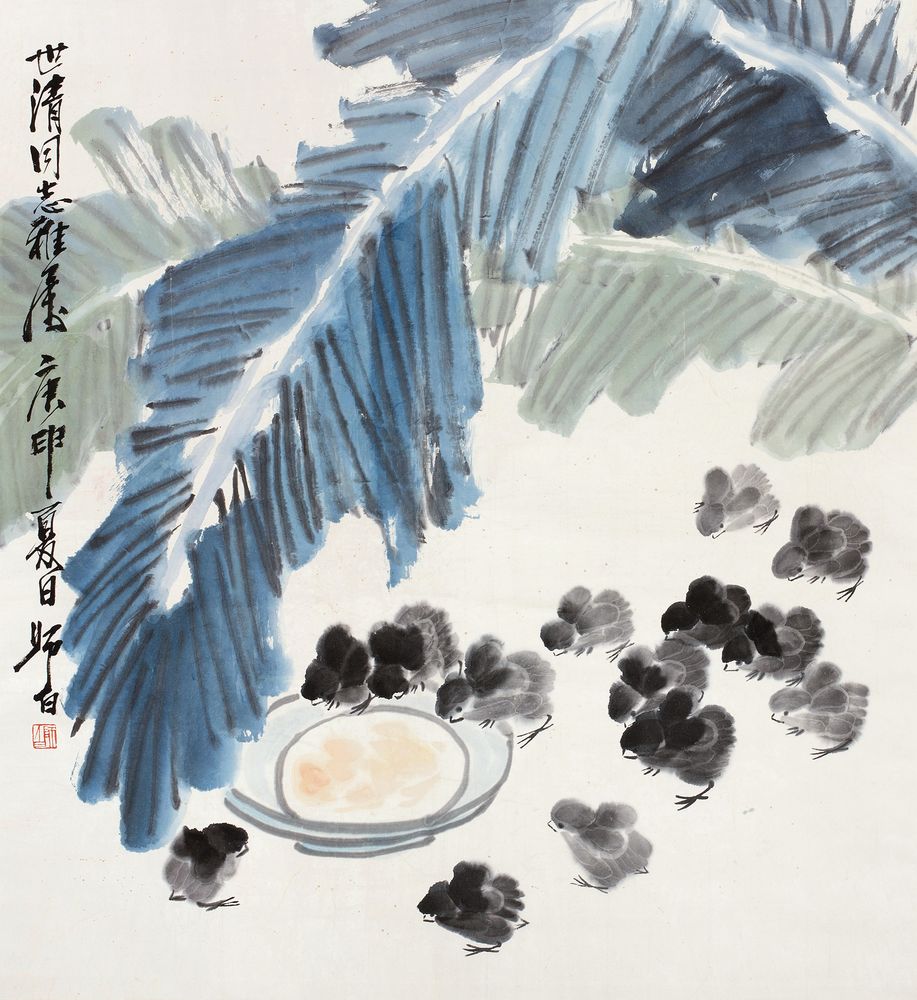 世清同志雅属庚申夏日师白